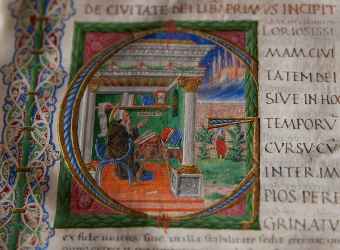 DE CIVITATE DEI LIB. PRIMVS INCIPIT
LORIOSISSI
MAM CIVI
TATEM DEI
SIVE IN HOC
TEMPORV̄
CVRSV CV̄
INTER IM
PIOS PERE
GRINATVR
ex fide uiuens siue in illa stabilitate sedis